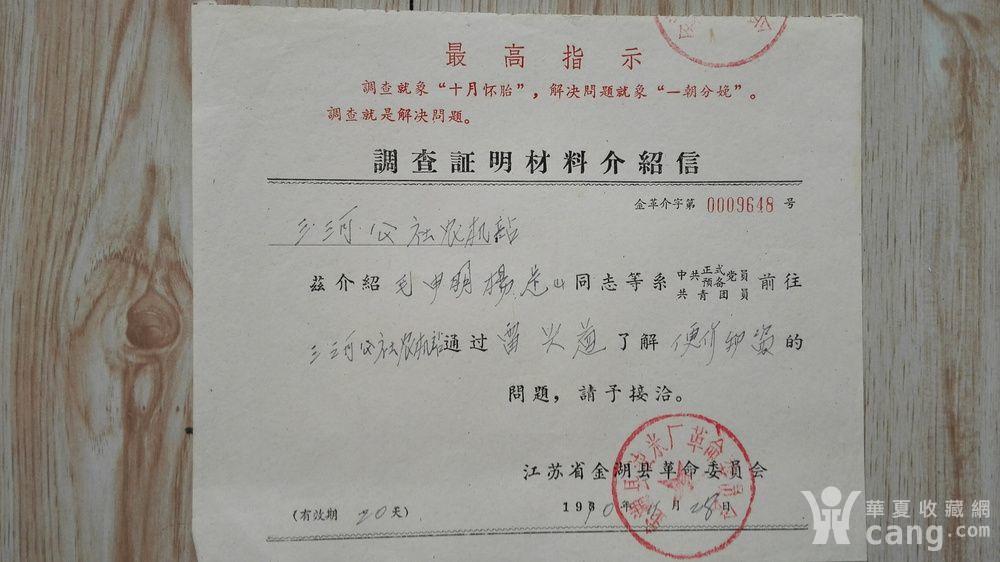 最高指示
調查就象“十月怀胎”，解决問題就象“一朝分娩”。
調查就是解决問題。
調查証明材料介紹信
金革介字第 0009648 号
三河公社农机站
茲介紹 毛中明 楊 同志等系 中共正式預备党员 共青团員 前往
三河公社农机站 通过 了解 的
問題，請予接洽。
江苏省金湖县革命委員会
1970年 月28日
(有效期 20 天)
米厂革命
華夏收藏網
cang.com